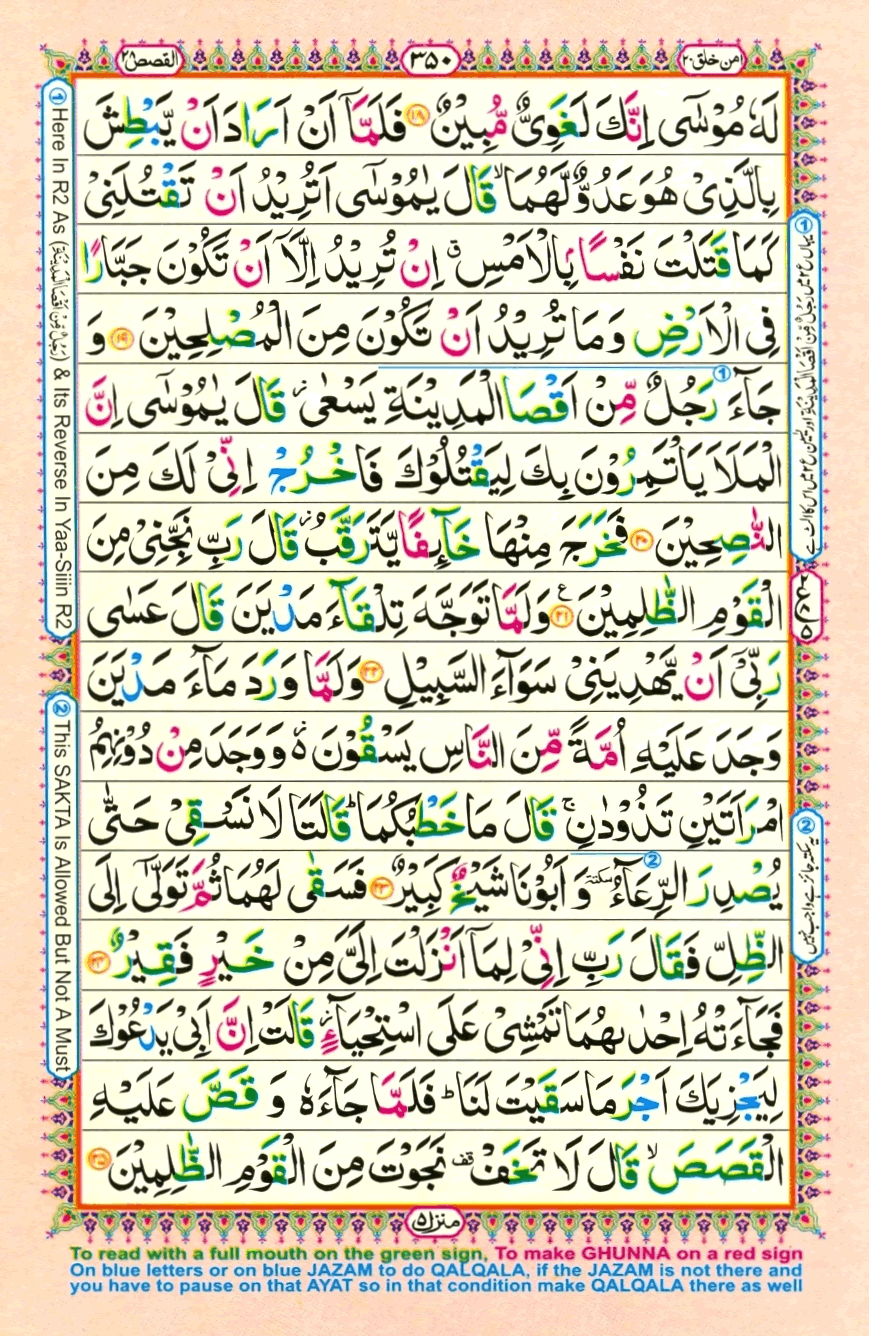 امن خلق ۲۰
۳۵۰
القصص ۲۸
لَهٗ مُوْسٰۤى اِنَّكَ لَغَوِىٌّ مُّبِيْنٌ ﴿۱۸﴾ فَلَمَّاۤ اَنْ اَرَادَ اَنْ يَّبْطِشَ
بِالَّذِىْ هُوَ عَدُوٌّ لَّهُمَا ۙ قَالَ يٰمُوْسٰٓى اَتُرِيْدُ اَنْ تَقْتُلَنِىْ
كَمَا قَتَلْتَ نَفْسًۢا بِالْاَمْسِ ۖق اِنْ تُرِيْدُ اِلَّاۤ اَنْ تَكُوْنَ جَبَّارًا
فِى الْاَرْضِ وَمَا تُرِيْدُ اَنْ تَكُوْنَ مِنَ الْمُصْلِحِيْنَ ﴿۱۹﴾ وَ
جَآءَ رَجُلٌ مِّنْ اَقْصَا الْمَدِيْنَةِ يَسْعٰى ز قَالَ يٰمُوْسٰٓى اِنَّ
الْمَلَاَ يَاْتَمِرُوْنَ بِكَ لِيَقْتُلُوْكَ فَاخْرُجْ اِنِّىْ لَكَ مِنَ
النّٰصِحِيْنَ ﴿۲۰﴾ فَخَرَجَ مِنْهَا خَآئِفًا يَّتَرَقَّبُ ز قَالَ رَبِّ نَجِّنِىْ مِنَ
الْقَوْمِ الظّٰلِمِيْنَ ﴿۲۱﴾ ع وَلَمَّا تَوَجَّهَ تِلْقَآءَ مَدْيَنَ قَالَ عَسٰى
رَبِّىْۤ اَنْ يَّهْدِيَنِىْ سَوَآءَ السَّبِيْلِ ﴿۲۲﴾ وَلَمَّا وَرَدَ مَآءَ مَدْيَنَ
وَجَدَ عَلَيْهِ اُمَّةً مِّنَ النَّاسِ يَسْقُوْنَ ۬ وَوَجَدَ مِنْ دُوْنِهِمُ
امْرَاَتَيْنِ تَذُوْدٰنِ ۚ قَالَ مَا خَطْبُكُمَا ؕ قَالَتَا لَا نَسْقِىْ حَتّٰى
يُصْدِرَ الرِّعَآءُ سكتة وَاَبُوْنَا شَيْخٌ كَبِيْرٌ ﴿۲۳﴾ فَسَقٰى لَهُمَا ثُمَّ تَوَلّٰٓى اِلَى
الظِّلِّ فَقَالَ رَبِّ اِنِّىْ لِمَاۤ اَنْزَلْتَ اِلَىَّ مِنْ خَيْرٍ فَقِيْرٌ ﴿۲۴﴾
فَجَآءَتْهُ اِحْدٰٮهُمَا تَمْشِىْ عَلَى اسْتِحْيَآءٍ ز قَالَتْ اِنَّ اَبِىْ يَدْعُوْكَ
لِيَجْزِيَكَ اَجْرَ مَا سَقَيْتَ لَنَا ؕ فَلَمَّا جَآءَهٗ وَ قَصَّ عَلَيْهِ
الْقَصَصَ ۙ قَالَ لَا تَخَفْ قف نَجَوْتَ مِنَ الْقَوْمِ الظّٰلِمِيْنَ ﴿۲۵﴾
منزل ۵
① Here In R2 As (رَجُلٌ مِّنْ اَقْصَا الْمَدِيْنَةِ) & Its Reverse In Yaa-Siiin R2
② This SAKTA Is Allowed But Not A Must
② یہ سکتہ جائز ہے واجب نہیں
To read with a full mouth on the green sign, To make GHUNNA on a red sign
On blue letters or on blue JAZAM to do QALQALA, if the JAZAM is not there and
you have to pause on that AYAT so in that condition make QALQALA there as well